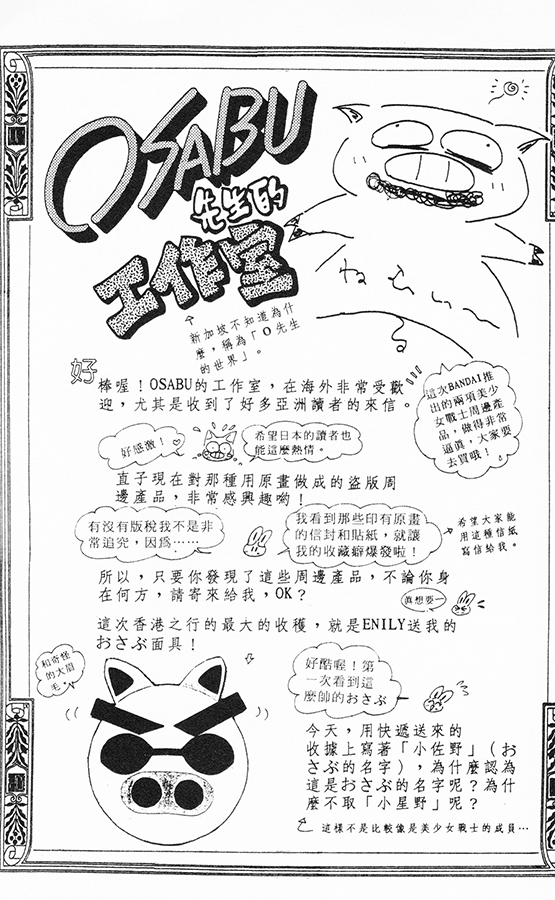 OSABU
先生的
工作室
新加坡不知道為什
麼，稱為「O先生
的世界」。
好
棒喔！OSABU的工作室，在海外非常受歡
迎，尤其是收到了好多亞洲讀者的來信。
這次BANDAI推
出的兩項美少
女戰士周邊產
品，做得非常
逼真，大家要
去買哦！
好感激！
希望日本的讀者也
能這麼熱情。
直子現在對那種用原畫做成的盜版周
邊產品，非常感興趣喲！
有沒有版稅我不是非
常追究，因為……
我看到那些印有原畫
的信封和貼紙，就讓
我的收藏癖爆發啦！
希望大家能
用這種信紙
寫信給我。
所以，只要你發現了這些周邊產品，不論你身
在何方，請寄來給我，OK？
真想要—
這次香港之行的最大的收穫，就是ENILY送我的
おさぶ面具！
和奇怪
的大眉
毛
好酷喔！第
一次看到這
麼帥的おさぶ
今天，用快遞送來的
收據上寫著「小佐野」（お
さぶの名字），為什麼認為
這是おさぶ的名字呢？為什
麼不取「小星野」呢？
這樣不是比較像是美少女戰士的成員…